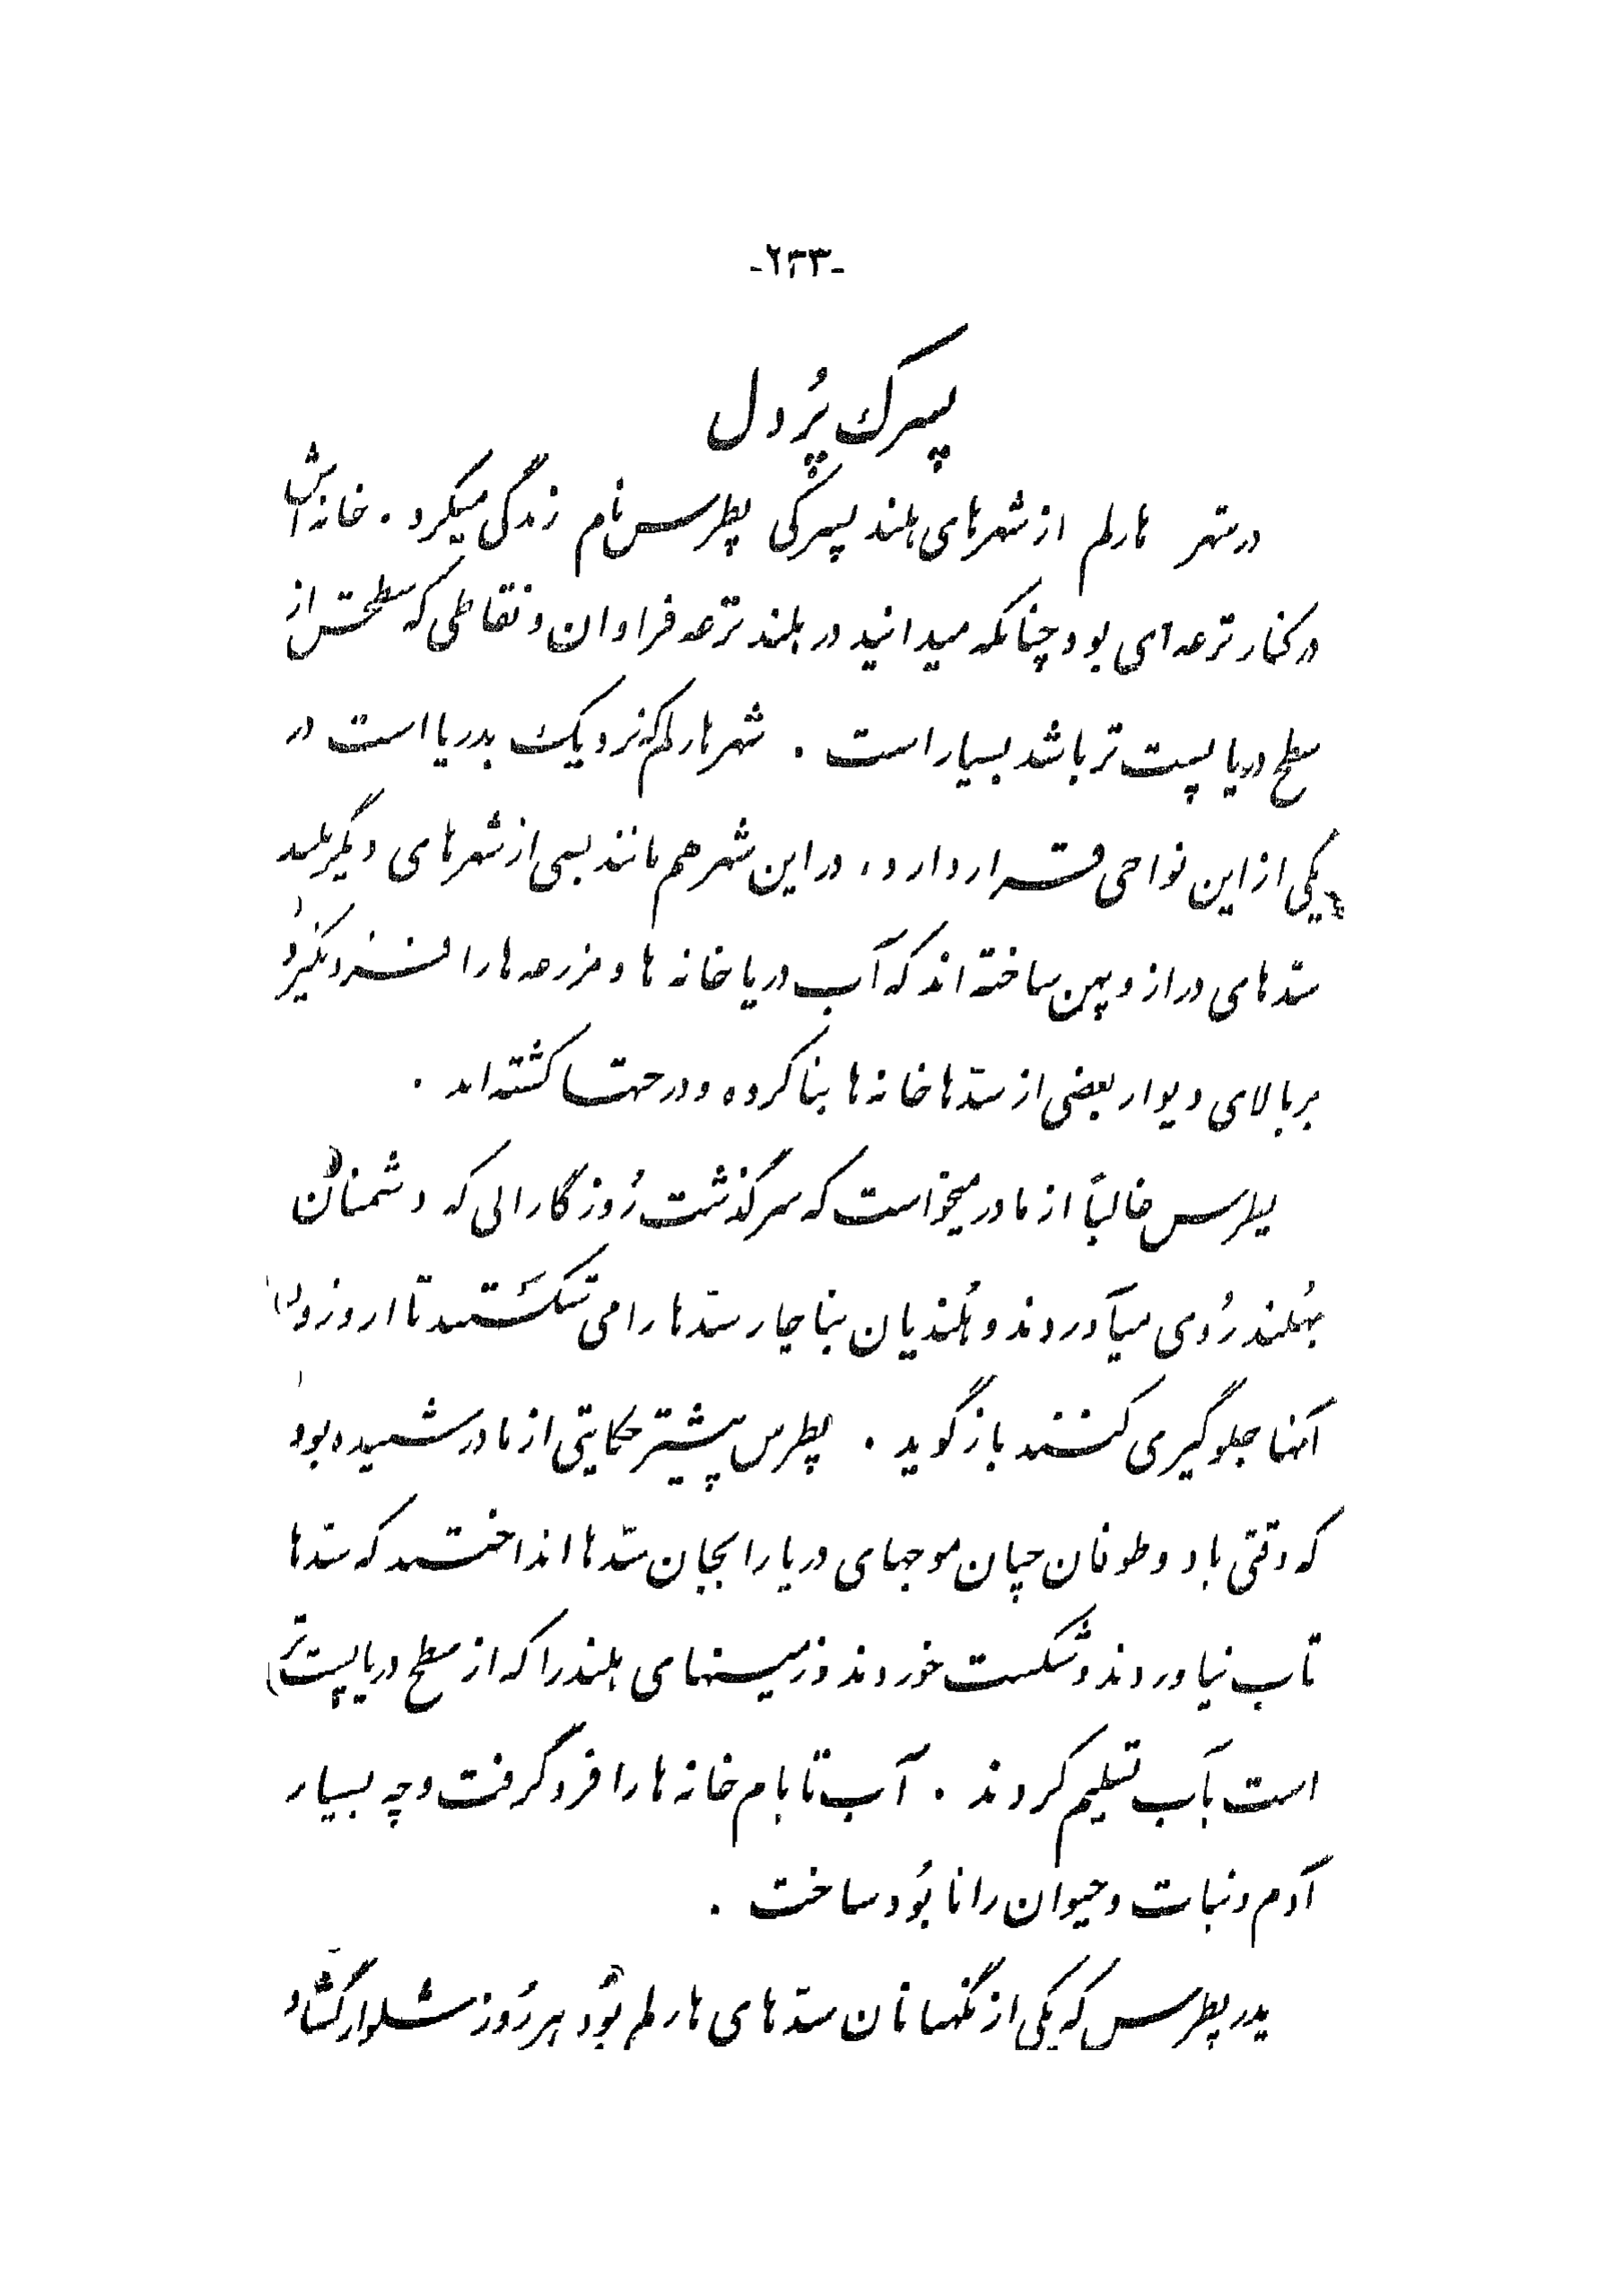 -۲۳۳-
پسرک پُردل
در شهر هارلم از شهرهای هلند پسرکی پطرس نام زندگی میکرد. خانه‌اش
در کنار ترعه‌ای بود چنانکه میدانید در هلند ترعه فراوان و نقاطی که سطحش از
سطح دریا پست تر باشد بسیار است. شهر هارلم که نزدیک بدریا است در
یکی از این نواحی قرار دارد، در این شهر هم مانند بسی از شهرهای دیگر هلند
سدّهای دراز و پهن ساخته اند که آب دریا خانه ها و مزرعه ها را فرونگیرد
بر بالای دیوار بعضی از سدّها خانه ها بنا کرده و درختها کشته اند.
پطرس غالباً از مادر میخواست که سرگذشت رُوزگارانی که دشمنان
بهُلند رُوی میآوردند و هُلندیان بناچار سدّها را می شکَستند تا از ورود
آنها جلوگیری کنند بازگوید. پطرس پیشتر حکایتی از مادر شنیده بود
که وقتی باد و طوفان چنان موجهای دریا را بجان سدّها انداختند که سدّها
تاب نیاوردند و شکست خوردند و زمینهای هلند را که از سطح دریا پست تر
است بآب تسلیم کردند. آب تا بام خانه ها را فرو گرفت و چه بسیار
آدم و نبات و حیوان را نابُود ساخت.
پدر پطرس که یکی از نگهبانان سدّهای هارلم بوُد هر رُوز شلوار گشاد